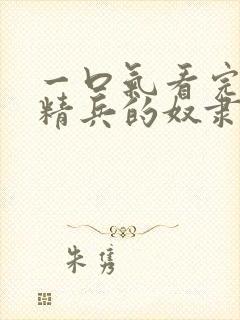 一口氣看完
精兵的奴隶
朱雋